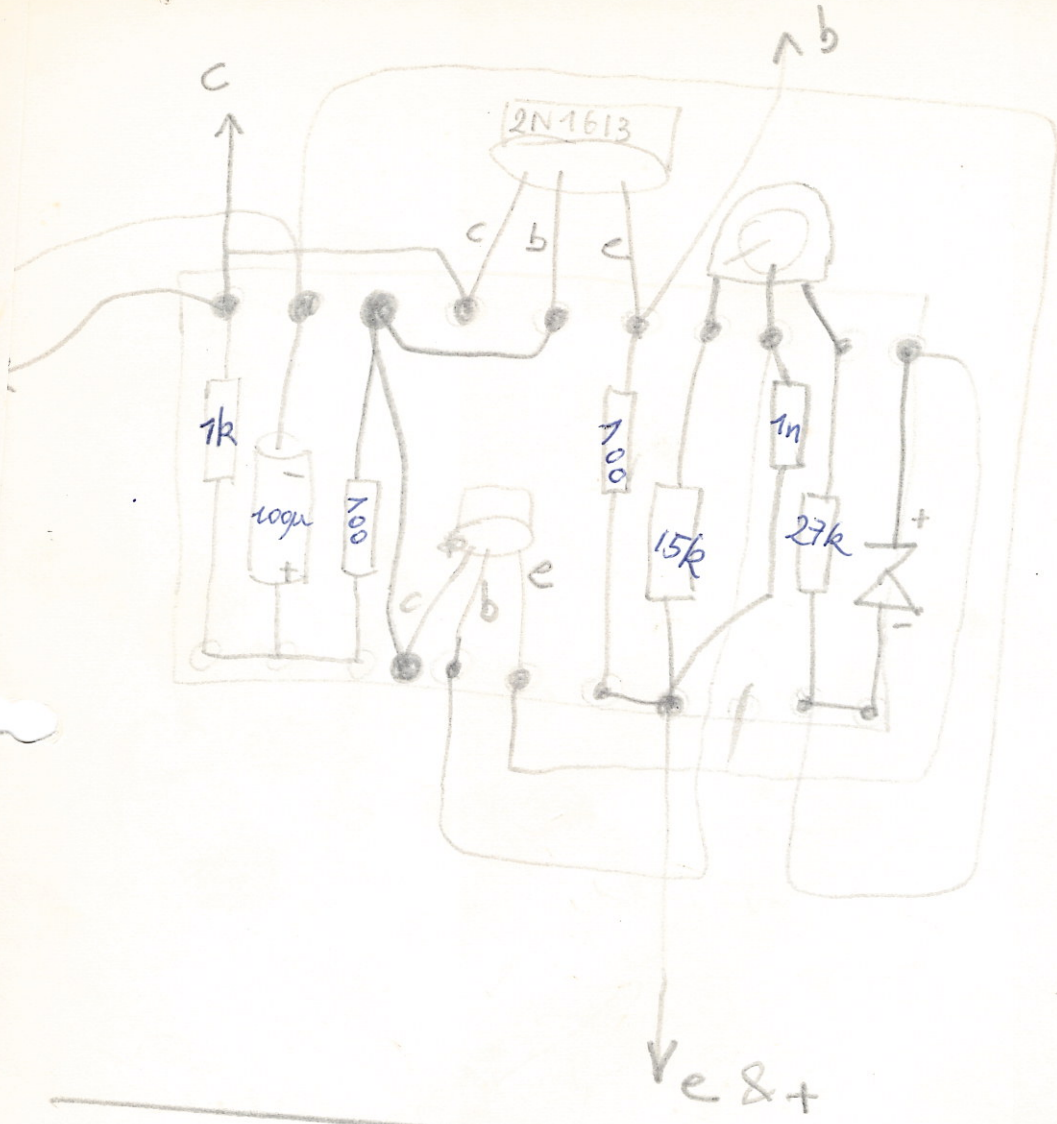 b
c
2N1613
c
b
e
1k
-
100µ
+
100
100
1n
15k
27k
+
-
c
b
e
e & +